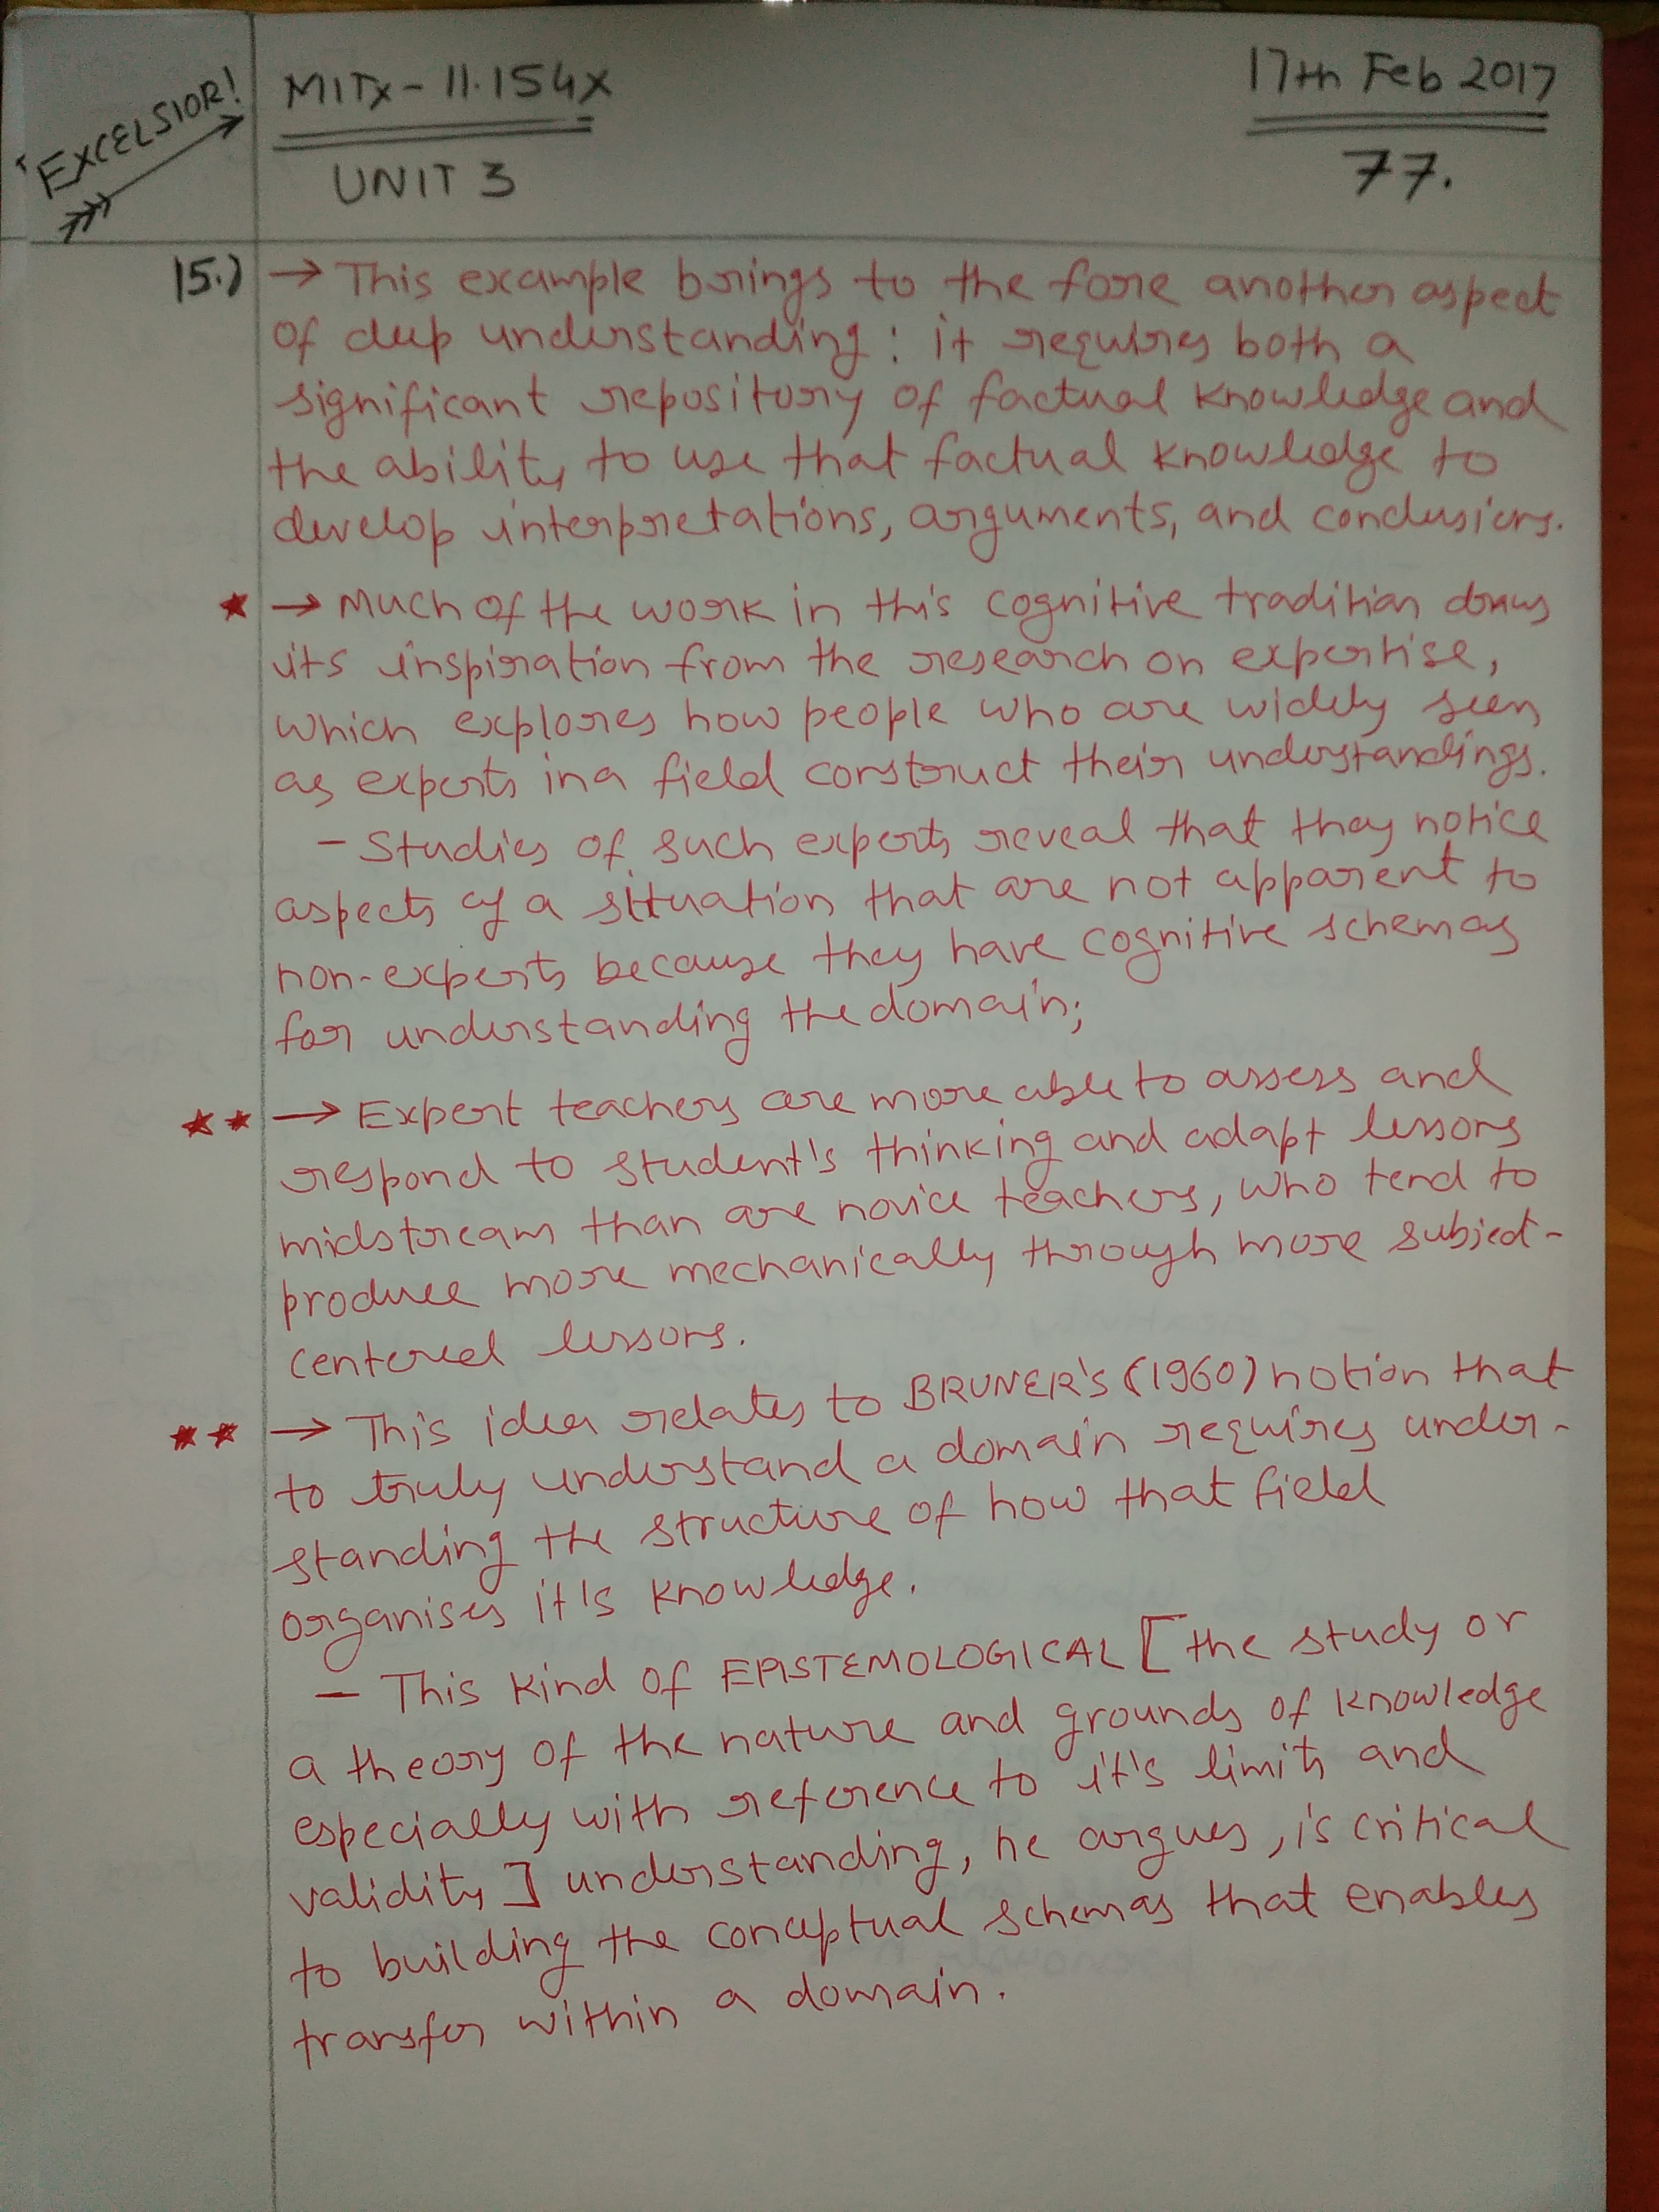 'EXCELSIOR!
MITx - 11.154x
UNIT 3
17th Feb 2017
77.
15.) → This example brings to the fore another aspect
of deep understanding: it requires both a
significant repository of factual knowledge and
the ability to use that factual knowledge to
develop interpretations, arguments, and conclusions.
★ → Much of the work in this cognitive tradition draws
its inspiration from the research on expertise,
which explores how people who are widely seen
as experts in a field construct their understandings.
- Studies of such experts reveal that they notice
aspects of a situation that are not apparent to
non-experts because they have cognitive schemas
for understanding the domain;
★★ → Expert teachers are more able to assess and
respond to student's thinking and adapt lessons
midstream than are novice teachers, who tend to
produce more mechanically through more subject-
centered lessons.
★★ → This idea relates to BRUNER'S (1960) notion that
to truly understand a domain requires under-
standing the structure of how that field
organises it's knowledge.
- This kind of EPISTEMOLOGICAL [the study or
a theory of the nature and grounds of knowledge
especially with reference to it's limits and
validity] understanding, he argues, is critical
to building the conceptual schemas that enables
transfer within a domain.